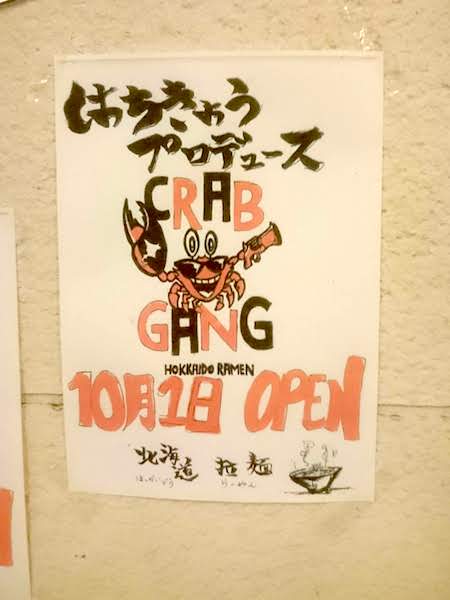 はちきょう
プロデュース
CRAB
GANG
HOKKAIDO RAMEN
10月1日 OPEN
北海道 拉麺
ほっかいどう らーめん